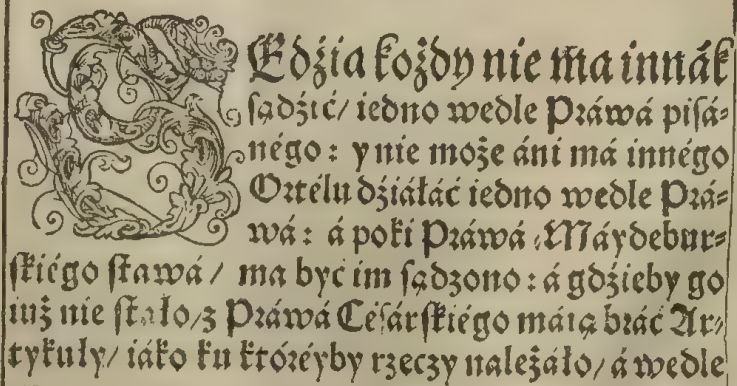 SĘdźia kożdy nie ma innák
sądźić/ iedno wedle Práwá pisá⸗
négo: y nie może áni má innégo
Ortélu dźiáłáć iedno wedle Prá⸗
wá: á poki Práwá Máydebur⸗
skiégo stawá/ ma być im sądzono: á gdźieby go
iuż nie stało/ z Práwá Césárskiégo máią bráć Ar⸗
tykuły/ iáko ku któréyby rzeczy należáło/ á wedle